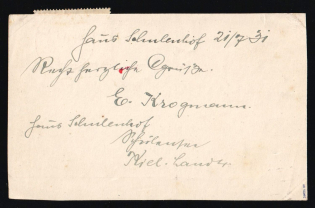 Haus Schulenhof 21/7 31
Recht herzliche Grüsse.
E. Krogmann.
Haus Schulenhof
Schulensee
Kiel-Land.